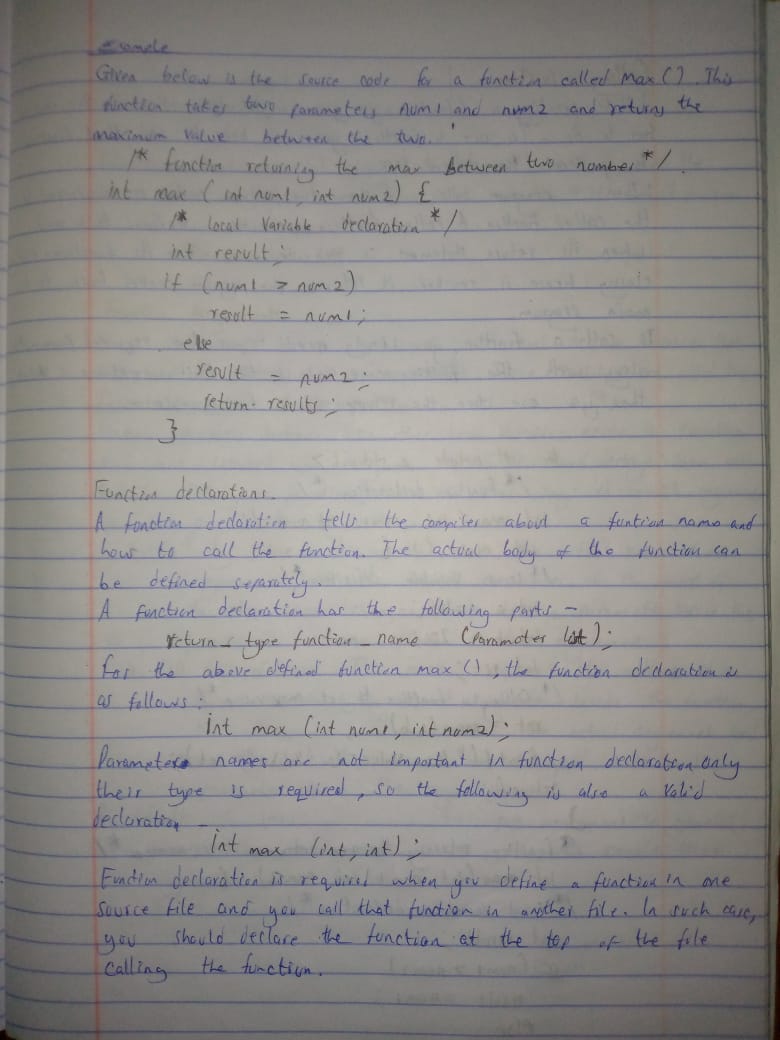 Example
Given below is the source code for a function called max (). This
function takes two parameters num1 and num2 and returns the
maximum value between the two.
/* function returning the max between two number */
int max (int num1, int num2) {
/* local variable declaration */
int result;
if (num1 > num2)
result = num1;
else
result = num2;
return results;
}
Function declarations.
A function declaration tells the compiler about a funtion name and
how to call the function. The actual body of the function can
be defined separately.
A function declaration has the following parts -
return_type function_name (Parameter list);
For the above defined function max (), the function declaration is
as follows:
int max (int num1, int num2);
Parameters names are not important in function declaration only
their type is required, so the following is also a valid
declaration -
int max (int, int);
Function declaration is required when you define a function in one
source file and you call that function in another file. In such case,
you should declare the function at the top of the file
calling the function.